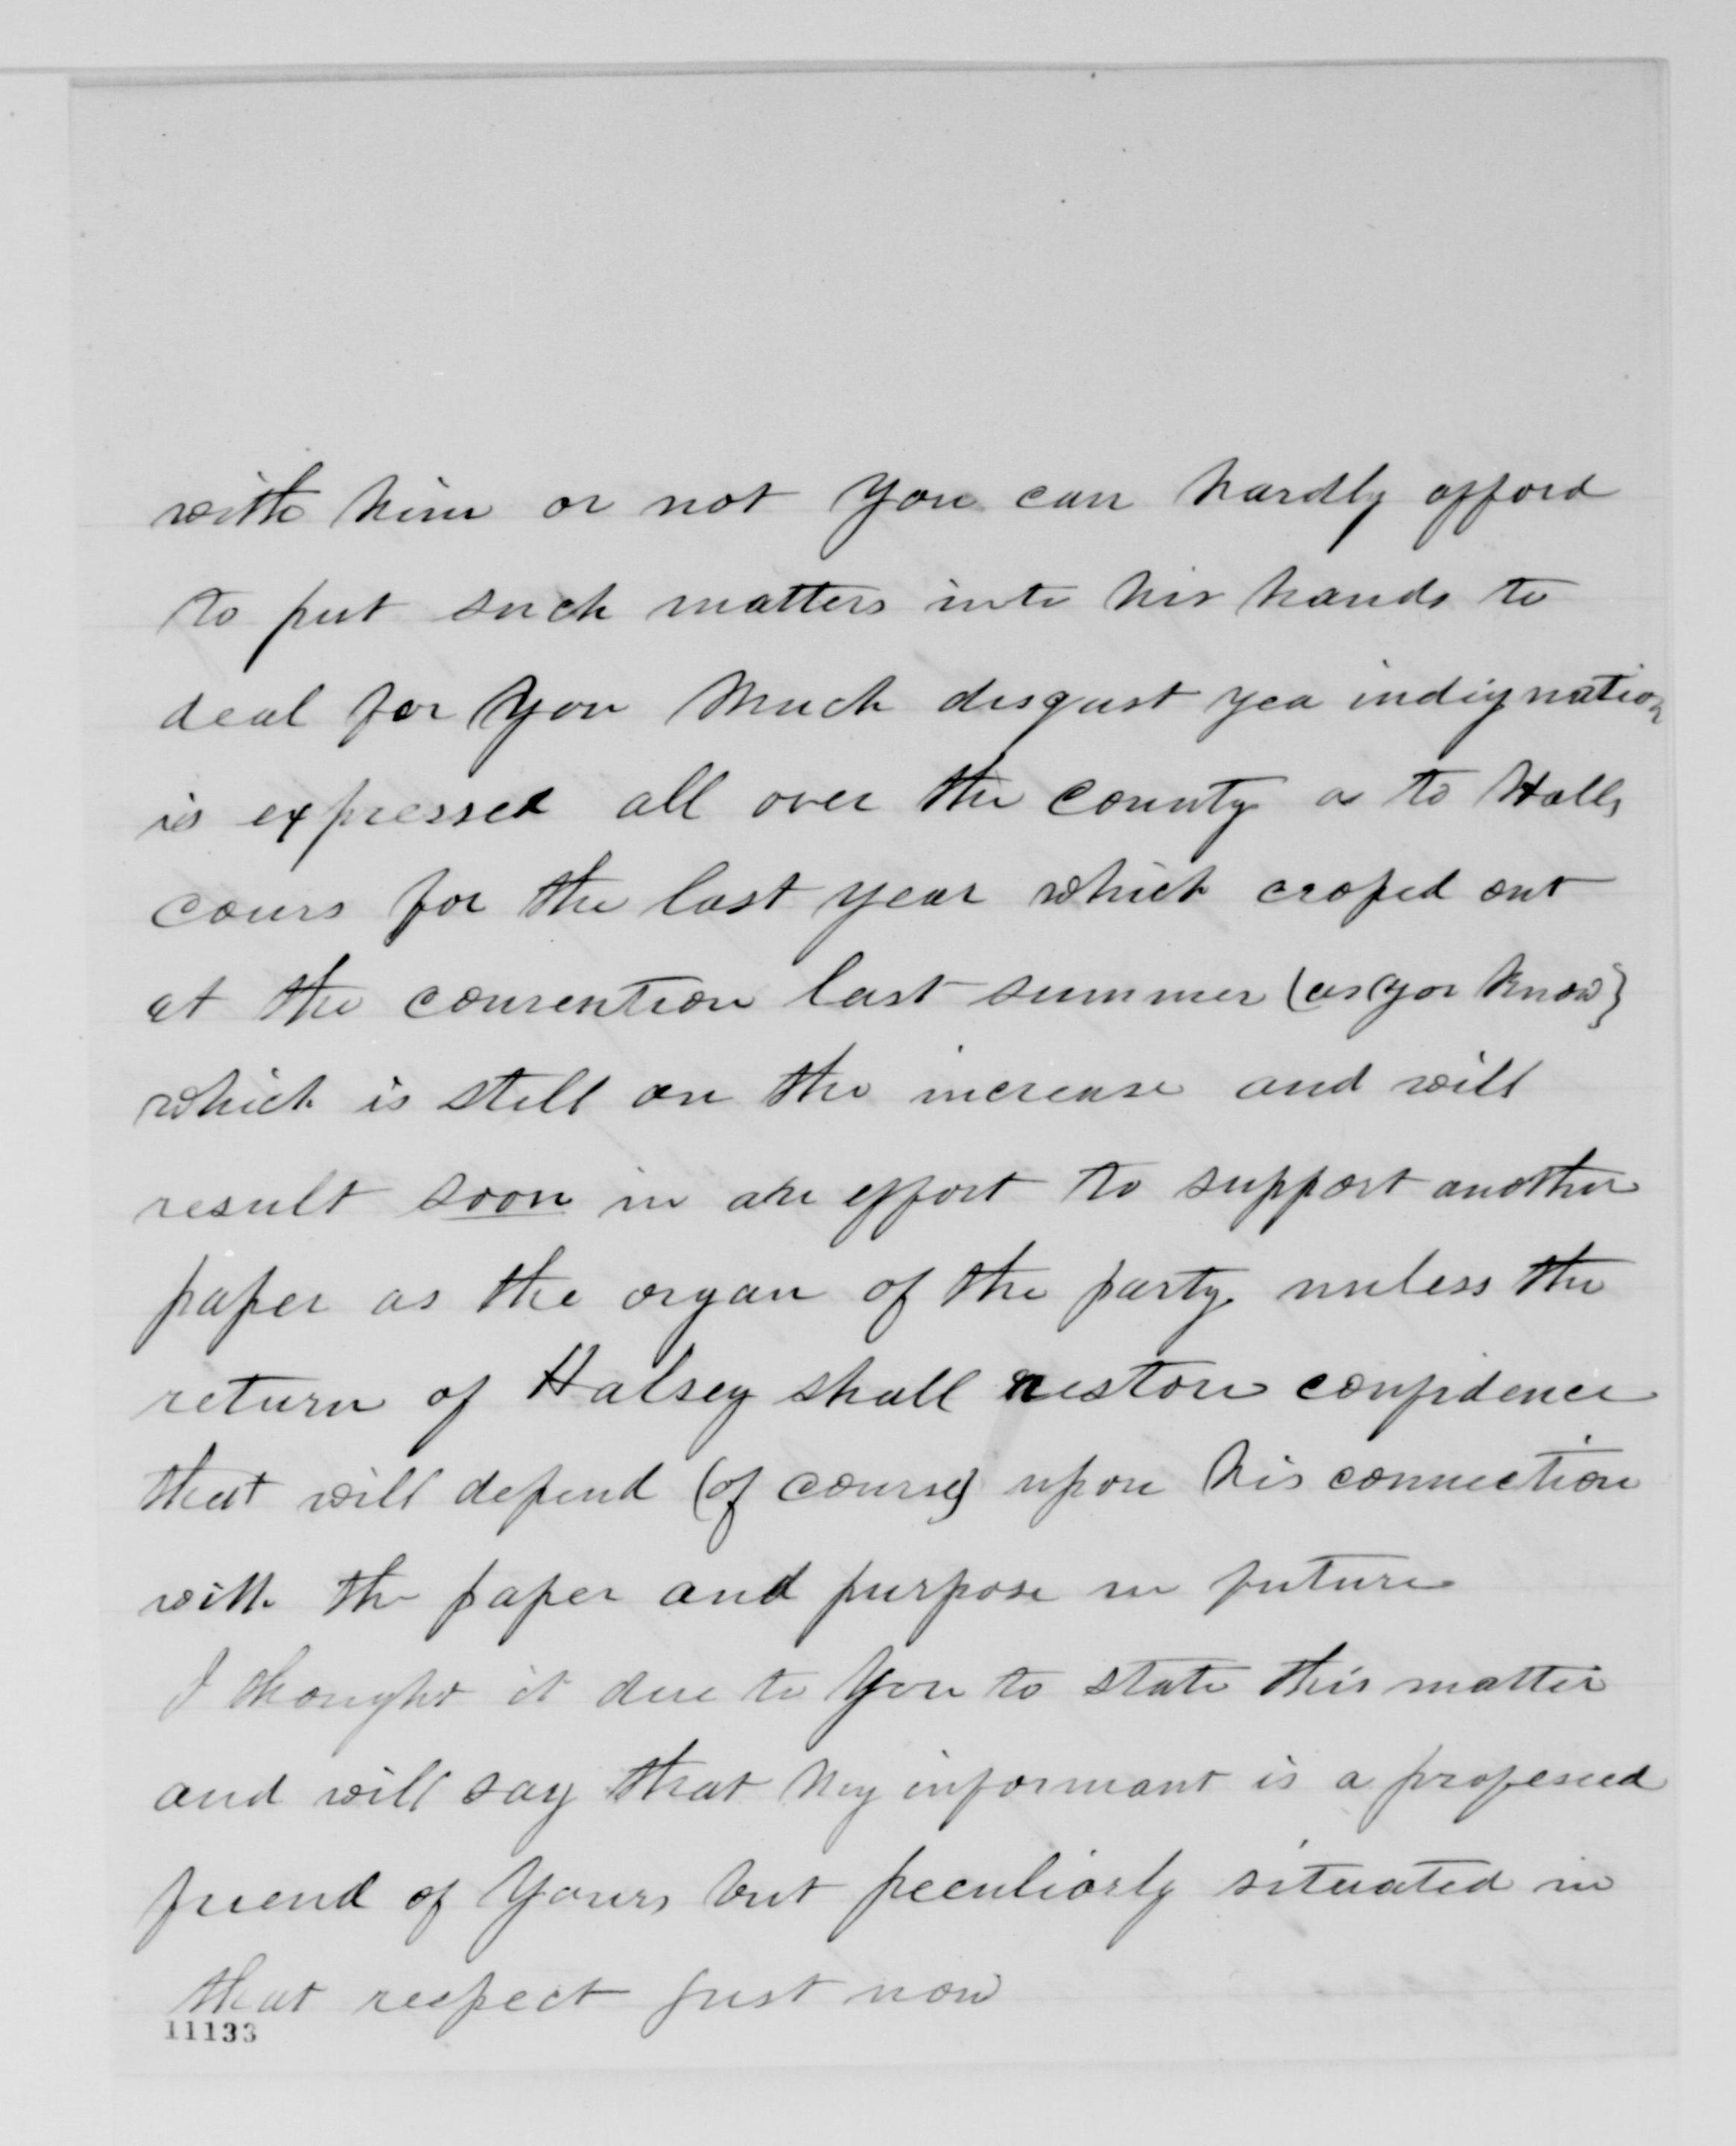 with him or not you can hardly afford
to put such matters into his hands to
deal for you Much disgust yea indignation
is expressed all over the county as to Halls
cours for the last year which croped out
at the convention last summer (as you know)
which is still on the increase and will
result soon in an effort to support another
paper as the organ of the party unless the
return of Halsey shall restore confidence
that will depend (of course) upon his connection
with the paper and purpose in future
I thought it due to you to state this matter
and will say that my informant is a profesed
friend of yours but peculiarly situated in
that respect just now
11133